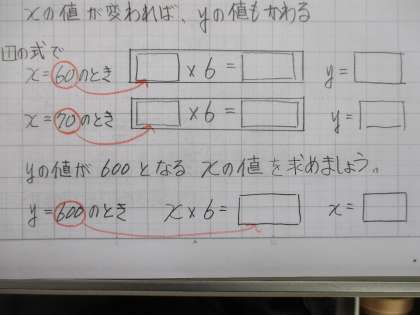 xの値が変われば、yの値もかわる
1の式で
x=60のとき □×6=□ y=□
x=70のとき □×6=□ y=□
yの値が600となるxの値を求めましょう。
y=600のとき x×6=□ x=□